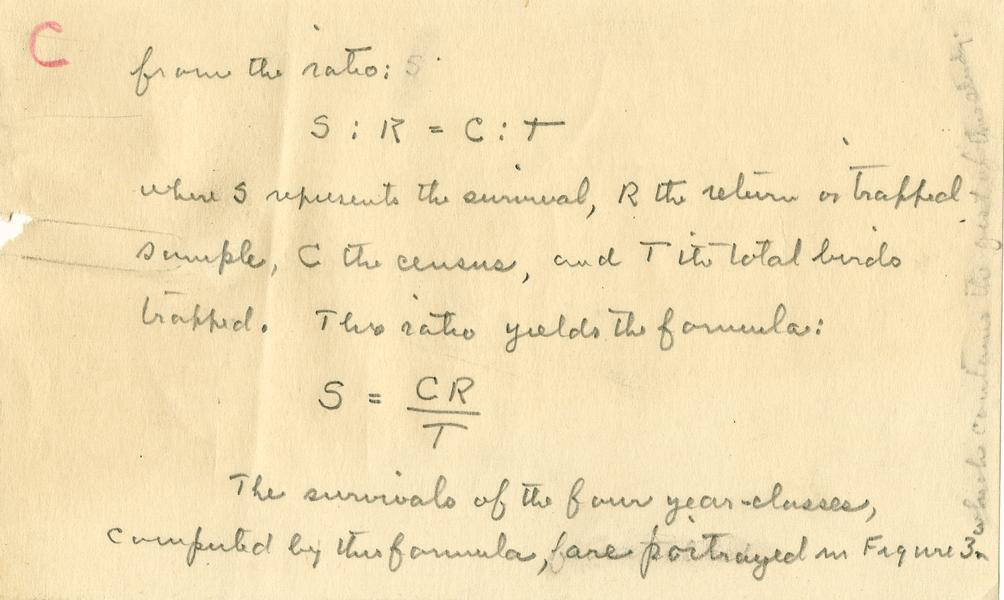 C
from the ratio: S
S : R = C : T
where S represents the survival, R the return or trapped
sample, C the census, and T the total birds
trapped. This ratio yields the formula:
S = CR
T
The survivals of the four year-classes,
computed by this formula, are portrayed in Figure 3,
which contains the gist of this study.